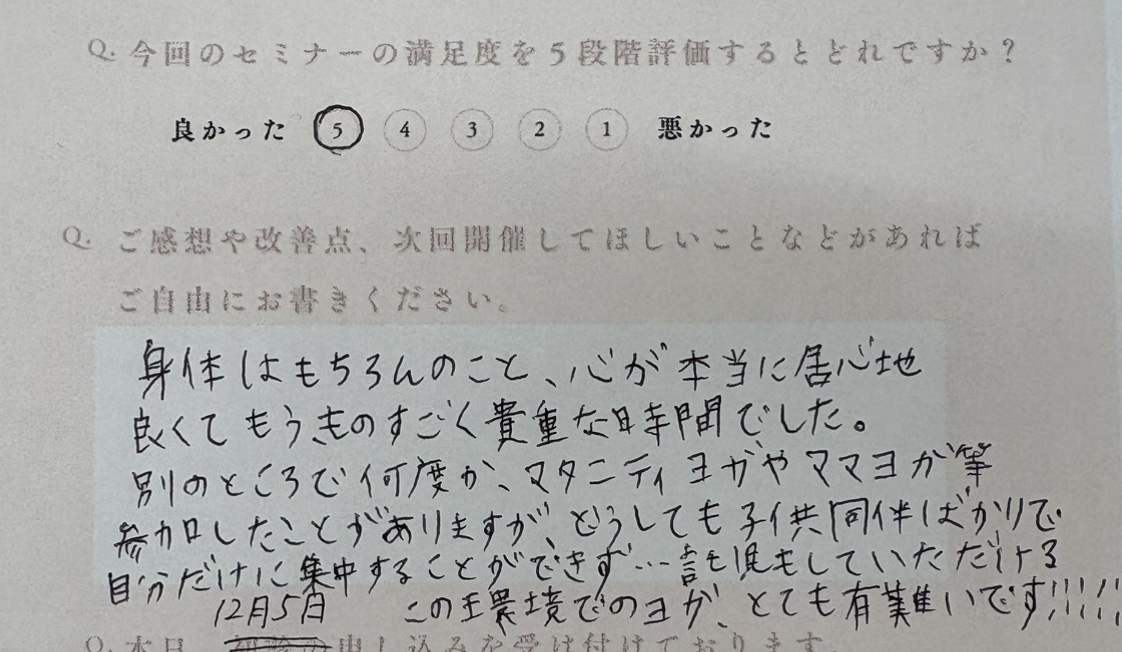 Q. 今回のセミナーの満足度を5段階評価するとどれですか？
良かった 5 4 3 2 1 悪かった
Q. ご感想や改善点、次回開催してほしいことなどがあれば
ご自由にお書きください。
身体はもちろんのこと、心が本当に居心地
良くてもう、ものすごく貴重な時間でした。
別のところで何度か、マタニティヨガやママヨガ等
参加したことがありますが、どうしても子供同伴ばかりで
自分だけに集中することができず…託児もしていただける
12月5日 この環境でのヨガ、とても有難いです!!!!!
Q. 本日 申し込みを受け付けております。